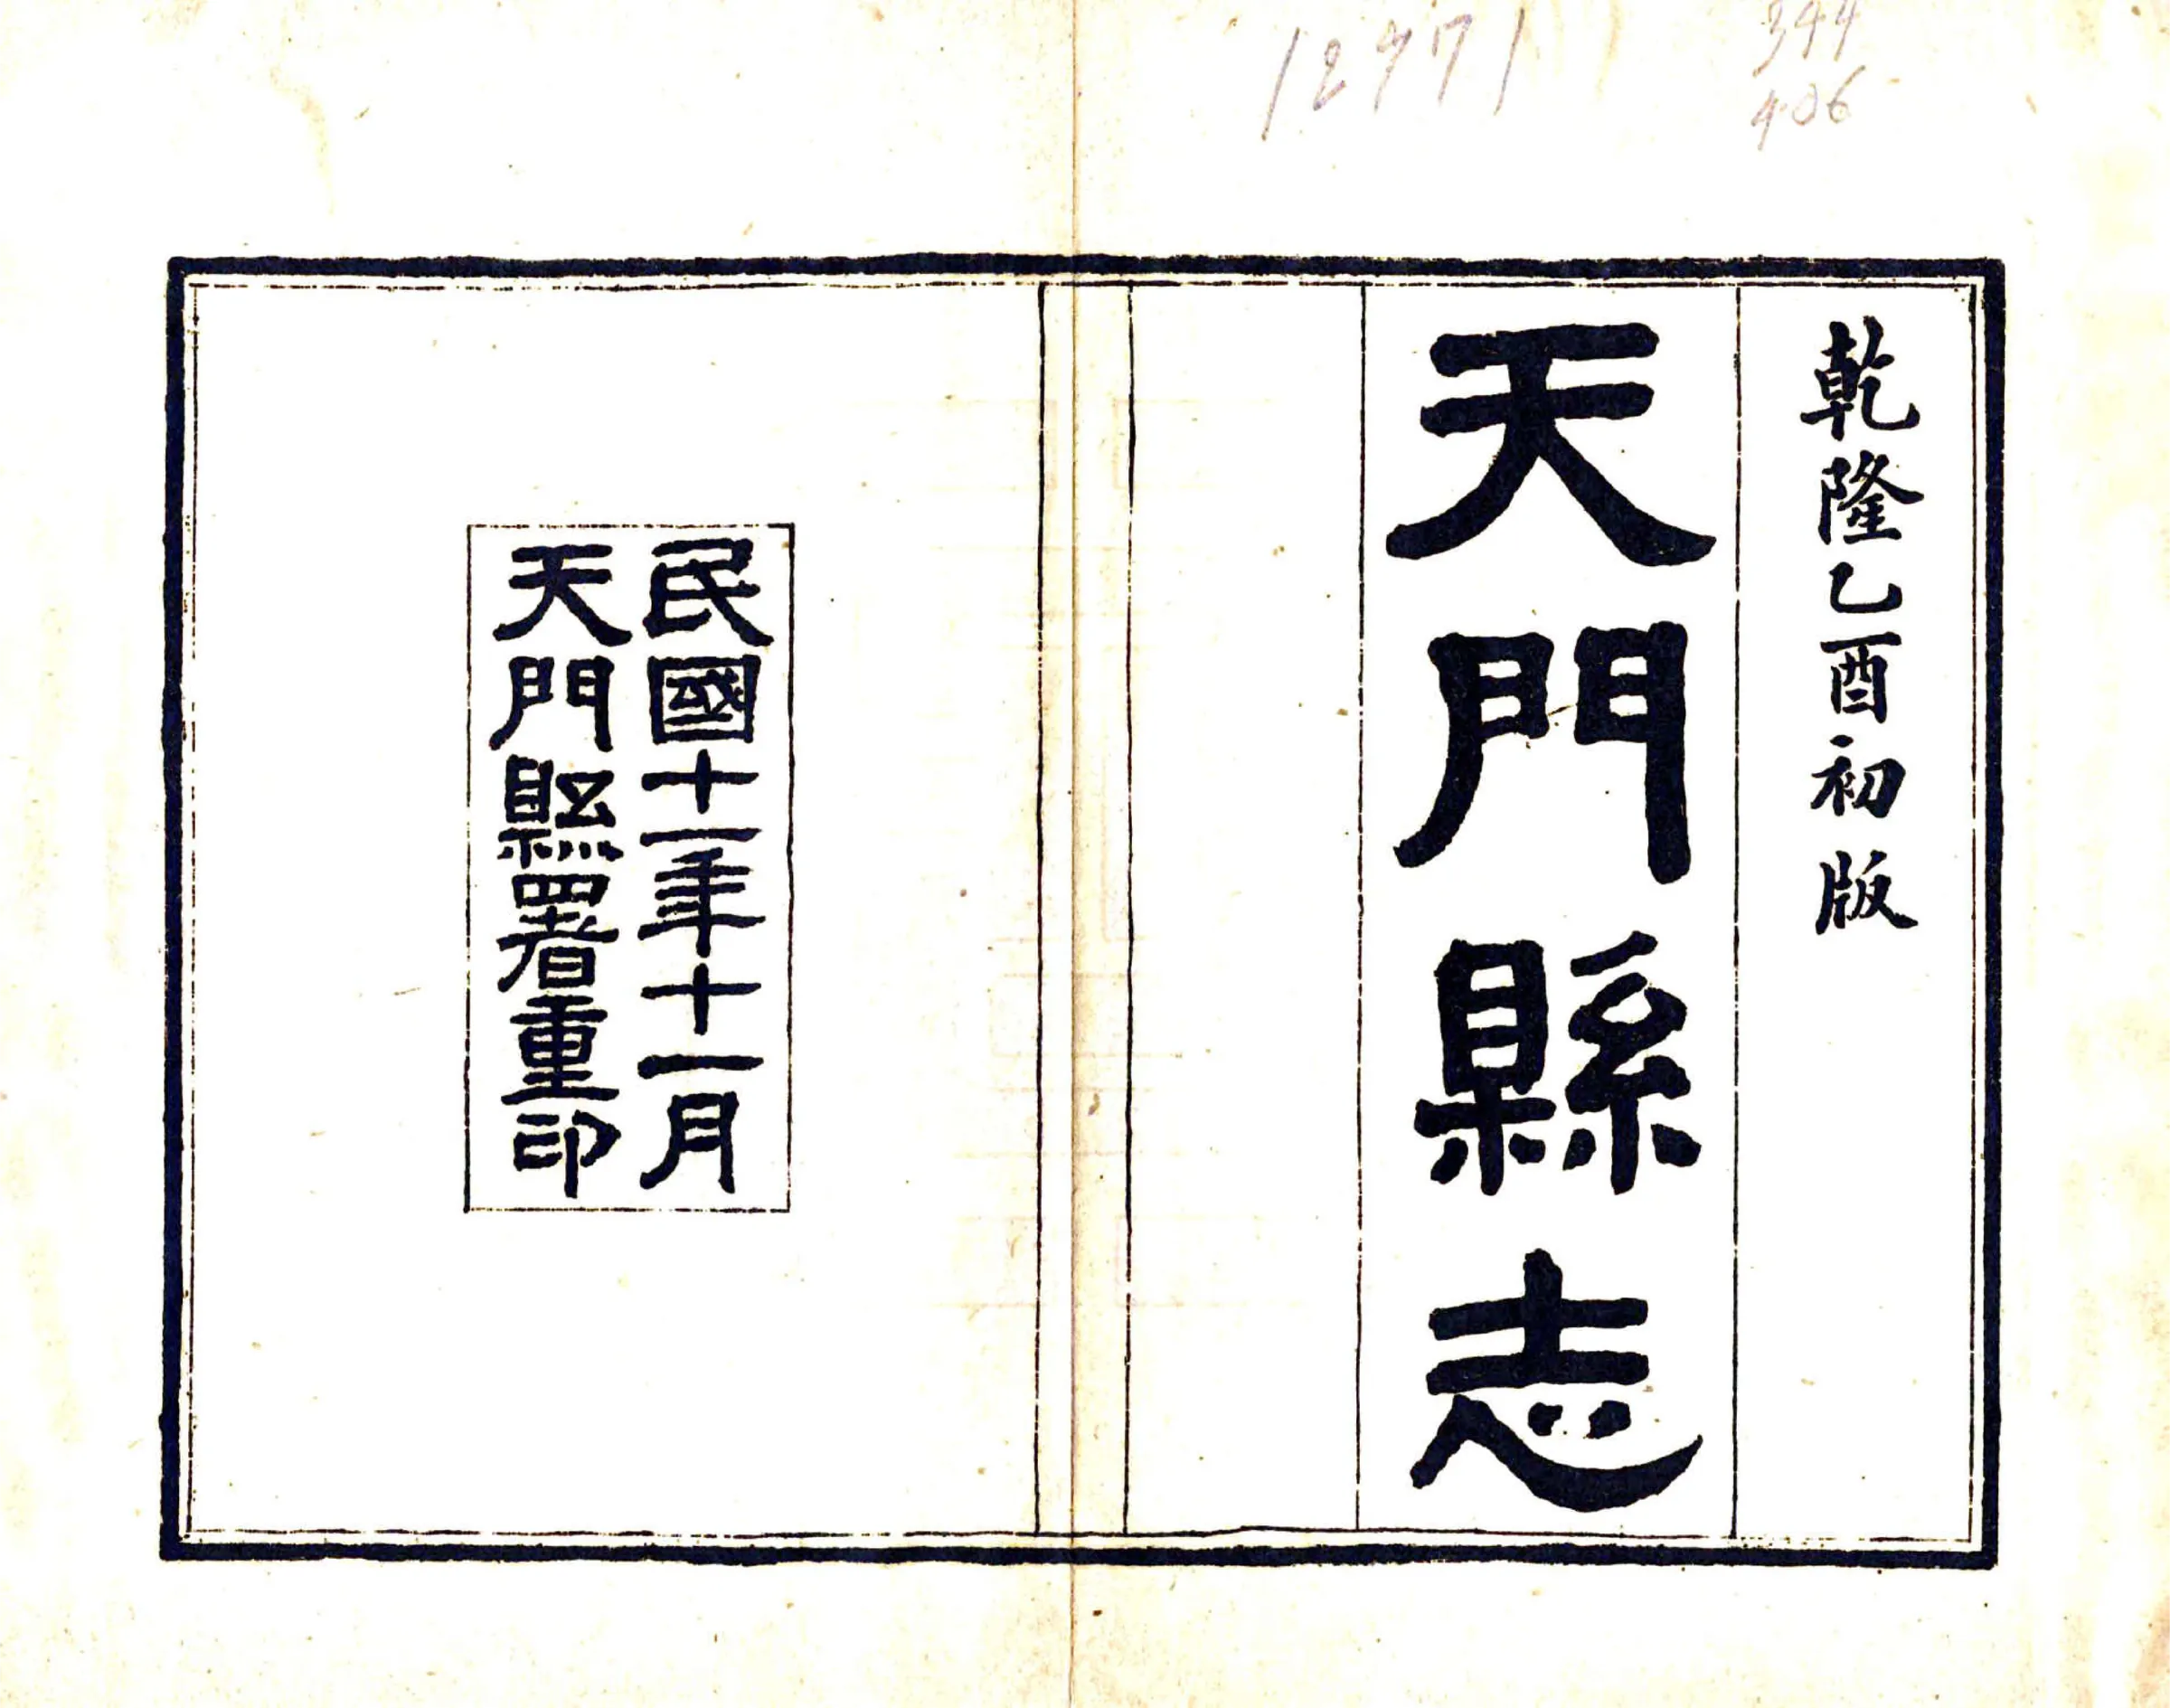 12971
344
406
乾隆乙酉初版
天門縣志
民國十一年十一月
天門縣署重印